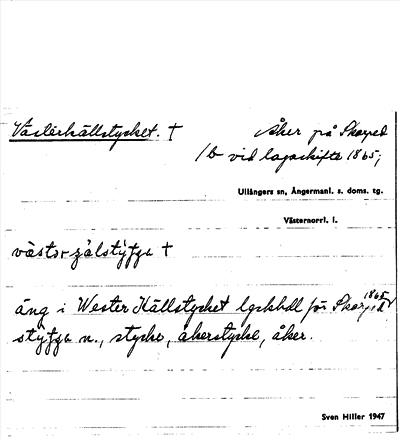 Västerkällstycket. †
Åker på Skorped
1/6 vid lagaskifte 1865;
Ullångers sn, Ångermanl. s. doms. tg.
Västernorrl. l.
västər
äng i Wester Källstycket för Skorped 1865
n., stycke, åkerstycke, åker.
Sven Hiller 1947